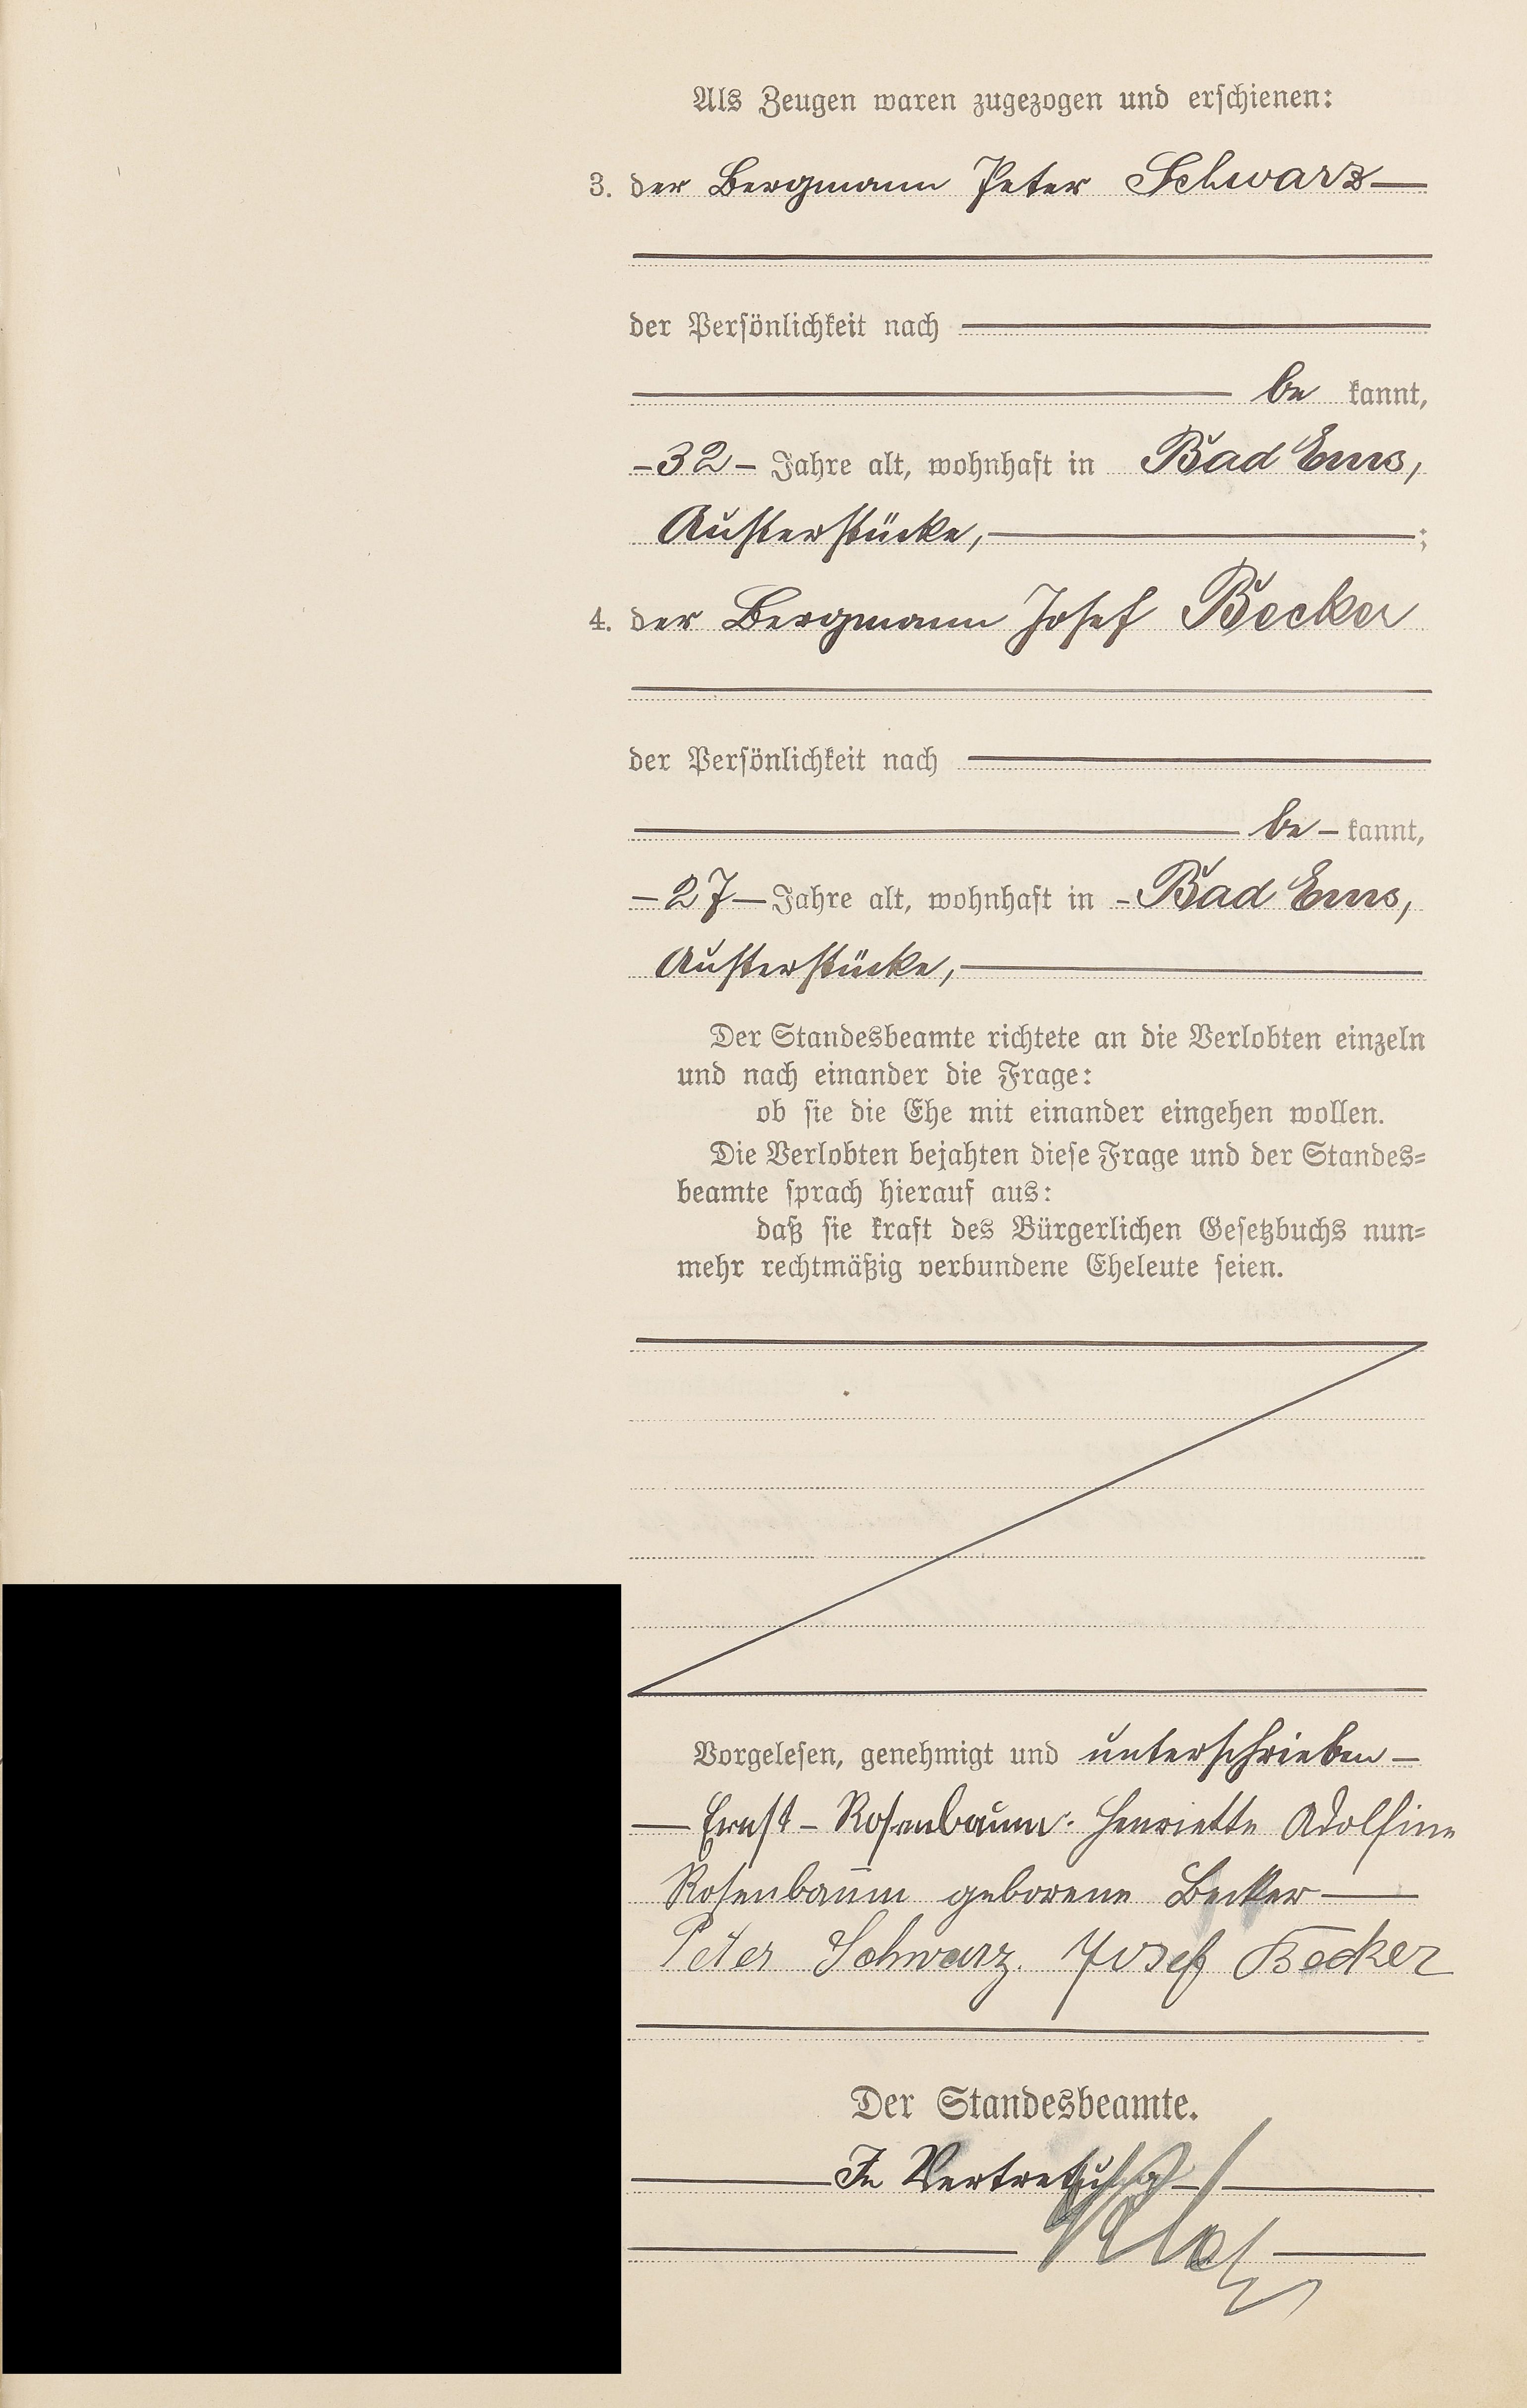 Als Zeugen waren zugezogen und erschienen:
3. der Bergmann Peter Schwarz
der Persönlichkeit nach
be kannt,
32 Jahre alt, wohnhaft in Bad Ems,
Austerstücke, ;
4. der Bergmann Josef Becker
der Persönlichkeit nach
be- kannt,
27 Jahre alt, wohnhaft in Bad Ems,
Austerstücke,
Der Standesbeamte richtete an die Verlobten einzeln
und nach einander die Frage:
ob sie die Ehe mit einander eingehen wollen.
Die Verlobten bejahten diese Frage und der Standes-
beamte sprach hierauf aus:
daß sie kraft des Bürgerlichen Gesetzbuchs nun-
mehr rechtmäßig verbundene Eheleute seien.
Vorgelesen, genehmigt und unterschrieben
Ernst Rosenbaum. Henriette Adolfine
Rosenbaum geborene Becker
Peter Schwarz. Josef Becker
Der Standesbeamte.
In Vertretung